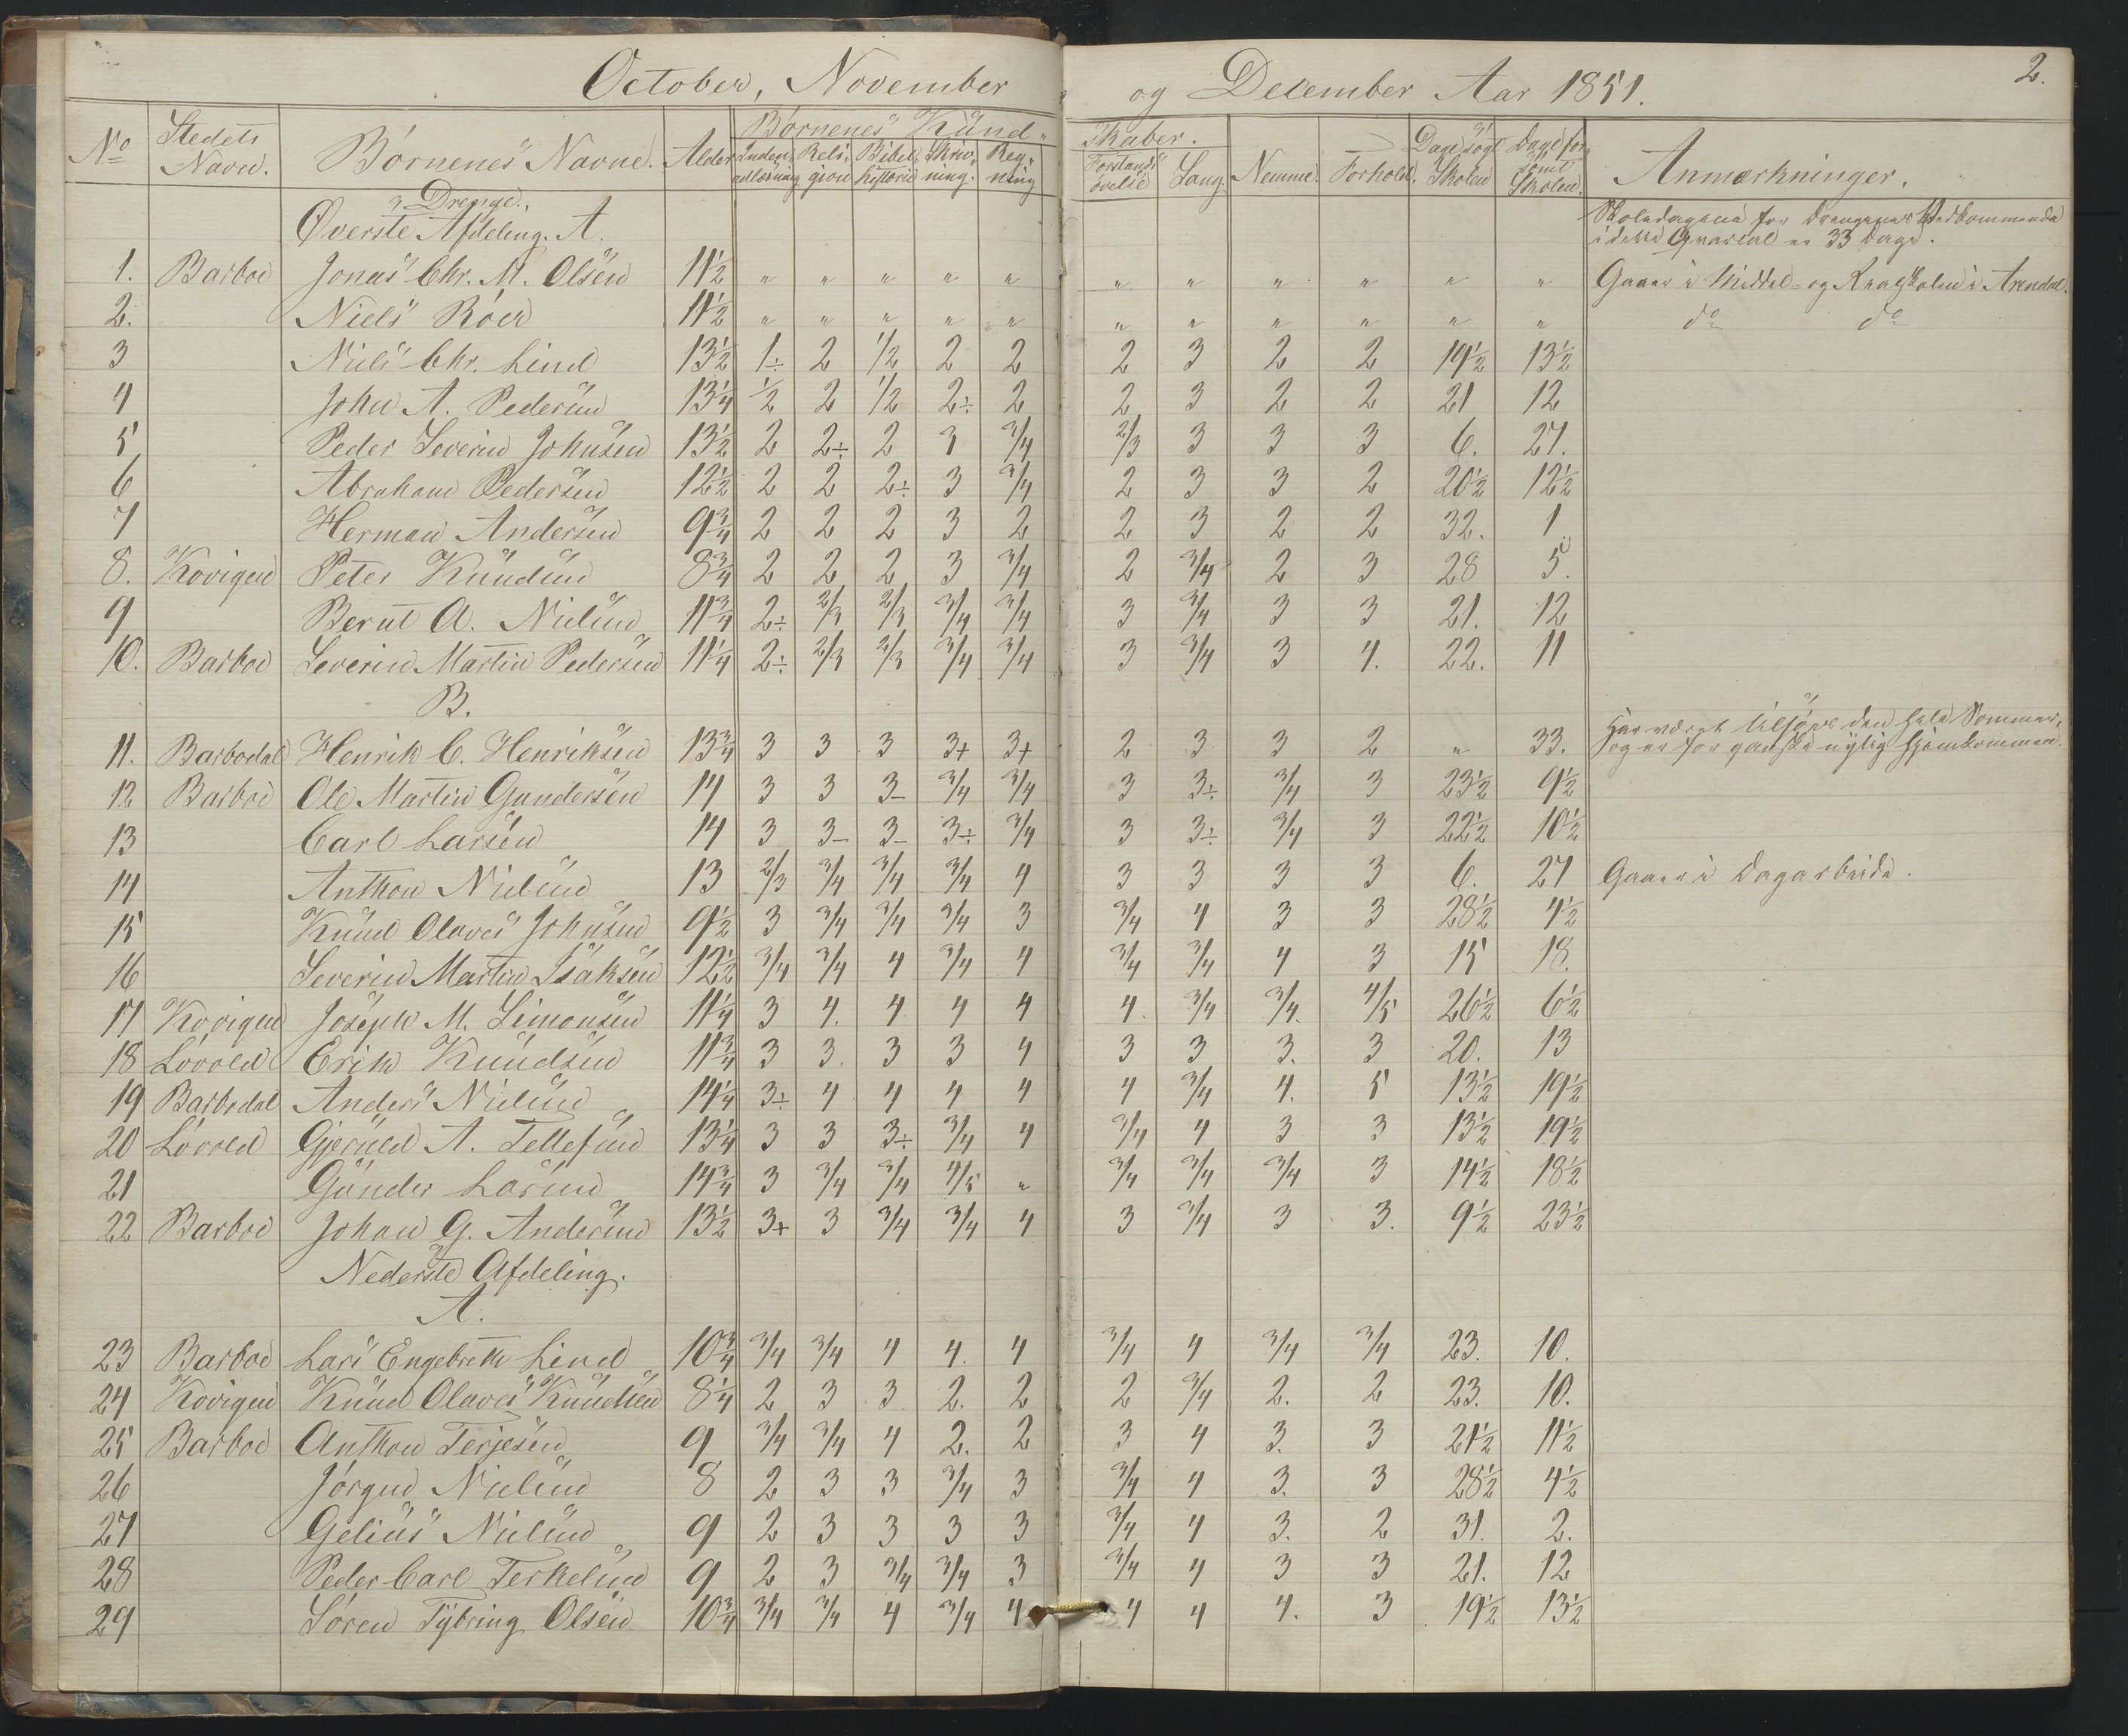 October, November og December Aar 1851. 2.
No Stedets Navn. Börnenes Navne. Alder Börnenes Kund- skaber. Nemme. Forhold. Dage sögt Skolen Dage forsömt Skolen. Anmærkninger.
Inden- adlæsning Reli- gion Bibel- historie Skriv- ning. Reg- ning Forstands övelse Sang.
Drenge.
Øverste Afdeling. A.
Skoledagene for Drengenes Vedkommende
i dette Qvartal er 33 Dage.
1. Barboe Jonas Chr. M. Olsen 11½ " " " " " " " " " " " Gaaer i Middel- og Realskolen i Arendal.
2. Niels Röed 11½ " " " " " " " " " " " do do
3 Niels Chr. Lind 13½ 1÷ 2 1/2 2 2 2 3 2 2 19½ 13½
4 John A. Pedersen 13¼ 1/2 2 1/2 2÷ 2 2 3 2 2 21 12
5 Peder Severin Johnsen 13½ 2 2÷ 2 3 3/4 2/3 3 3 3 6. 27.
6 Abraham Pedersen 12½ 2 2 2÷ 3 3/4 2 3 3 2 20½ 12½
7 Herman Andersen 9¾ 2 2 2 3 2 2 3 2 2 32. 1.
8. Kovigen Peter Knudsen 8¾ 2 2 2 3 3/4 2 3/4 2 3 28 5.
9 Bernt A. Nielsen 11¾ 2÷ 2/3 2/3 3/4 3/4 3 3/4 3 3 21. 12
10. Barboe Severin Martin Pedersen 11¼ 2÷ 2/3 2/3 3/4 3/4 3 3/4 3 4. 22. 11
B.
11. Barbodal Henrik C. Henriksen 13¾ 3 3 3 3+ 3+ 2 3 3 2 " 33. Har været tilsöes den hele Sommer,
og er for ganske nylig hjemkommen.
12 Barboe Ole Martin Gundersen 14 3 3 3- 3/4 3/4 3 3÷ 3/4 3 23½ 9½
13 Carl Larsen 14 3 3- 3- 3÷ 3/4 3 3÷ 3/4 3 22½ 10½
14 Anthon Nielsen 13 2/3 3/4 3/4 3/4 4 3 3 3 3 6. 27 Gaaer i Dagarbeide.
15 Knud Olaves Johnsen 9½ 3 3/4 3/4 3/4 3 3/4 4 3 3 28½ 4½
16 Severin Martin Isaksen 12½ 3/4 3/4 4 3/4 4 3/4 3/4 4 3 15 18.
17 Kovigen Joseph M. Simonsen 11¼ 3 4. 4 4 4 4. 3/4 3/4. 4/5 26½ 6½
18 Lövold Erik Knudsen 11¾ 3 3. 3 3 4 3 3 3. 3 20. 13
19 Barbodal Anders Nielsen 14¼ 3÷ 4 4 4 4 4 3/4 4. 5 13½ 19½
20 Lövold Gjeruld A. Tellefsen 13¼ 3 3 3÷ 3/4 4 3/4 4 3 3 13½ 19½
21 Gunder Larsen 14¾ 3 3/4 3/4 4/5 " 3/4 3/4 3/4 3 14½ 18½
22 Barboe Johan G. Andersen 13½ 3+ 3 3/4 3/4 4 3 3/4 3 3. 9½ 23½
Nederste Afdeling.
A.
23 Barboe Lars Engebreth Lind 10¾ 3/4 3/4 4 4. 4 3/4 4 3/4 3/4 23. 10.
24 Kovigen Knud Olaves Knudsen 8¼ 2 3 3 2. 2 2 3/4 2. 2 23. 10.
25 Barboe Anthon Terjesen 9 3/4 3/4 4 2. 2 3 4 3. 3 21½ 11½
26 Jörgen Nielsen 8 2 3 3 3/4 3 3/4 4 3. 3 28½ 4½
27 Gelius Nielsen 9 2 3 3 3 3 3/4 4 3. 2 31. 2.
28 Peder Carl Terkelsen 9 2 3 3/4 3/4 3 3/4 4 3 3 21. 12
29 Sören Tybring Olsen 10¾ 3/4 3/4 4 3/4 4 4 4 4. 3 19½ 13½